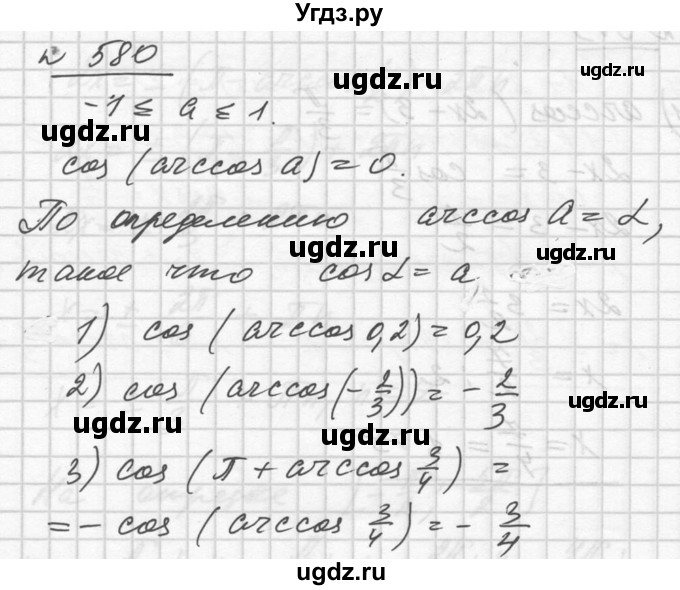 Угдз.ру
№ 580
-1 ≤ a ≤ 1.
cos (arccos a) = 0.
По определению arccos a = α,
такое что cos α = a
1) cos (arccos 0,2) = 0,2
2) cos (arccos (-2/3)) = -2/3
3) cos (π + arccos 3/4) =
= -cos (arccos 3/4) = -3/4
ugdz.ru
ugdz.ru
ugdz.ru
ugdz.ru
ugdz.ru
ugdz.ru
ugdz.ru
ugdz.ru
ugdz.ru
ugdz.ru
ugdz.ru